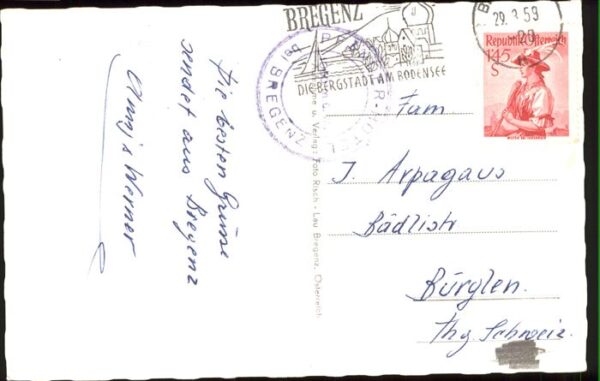 Die besten Grüsse
sendet aus Bregenz
Werner
BREGENZ
DIE BERGSTADT AM BODENSEE
29. 3. 59
Republik Österreich
1'45
S
bei BREGENZ
u. Verlag: Foto Risch - Lau Bregenz, Österreich
Fam
J. Arpagaus
Bädlistr
Bürglen.
Thg. Schweiz.